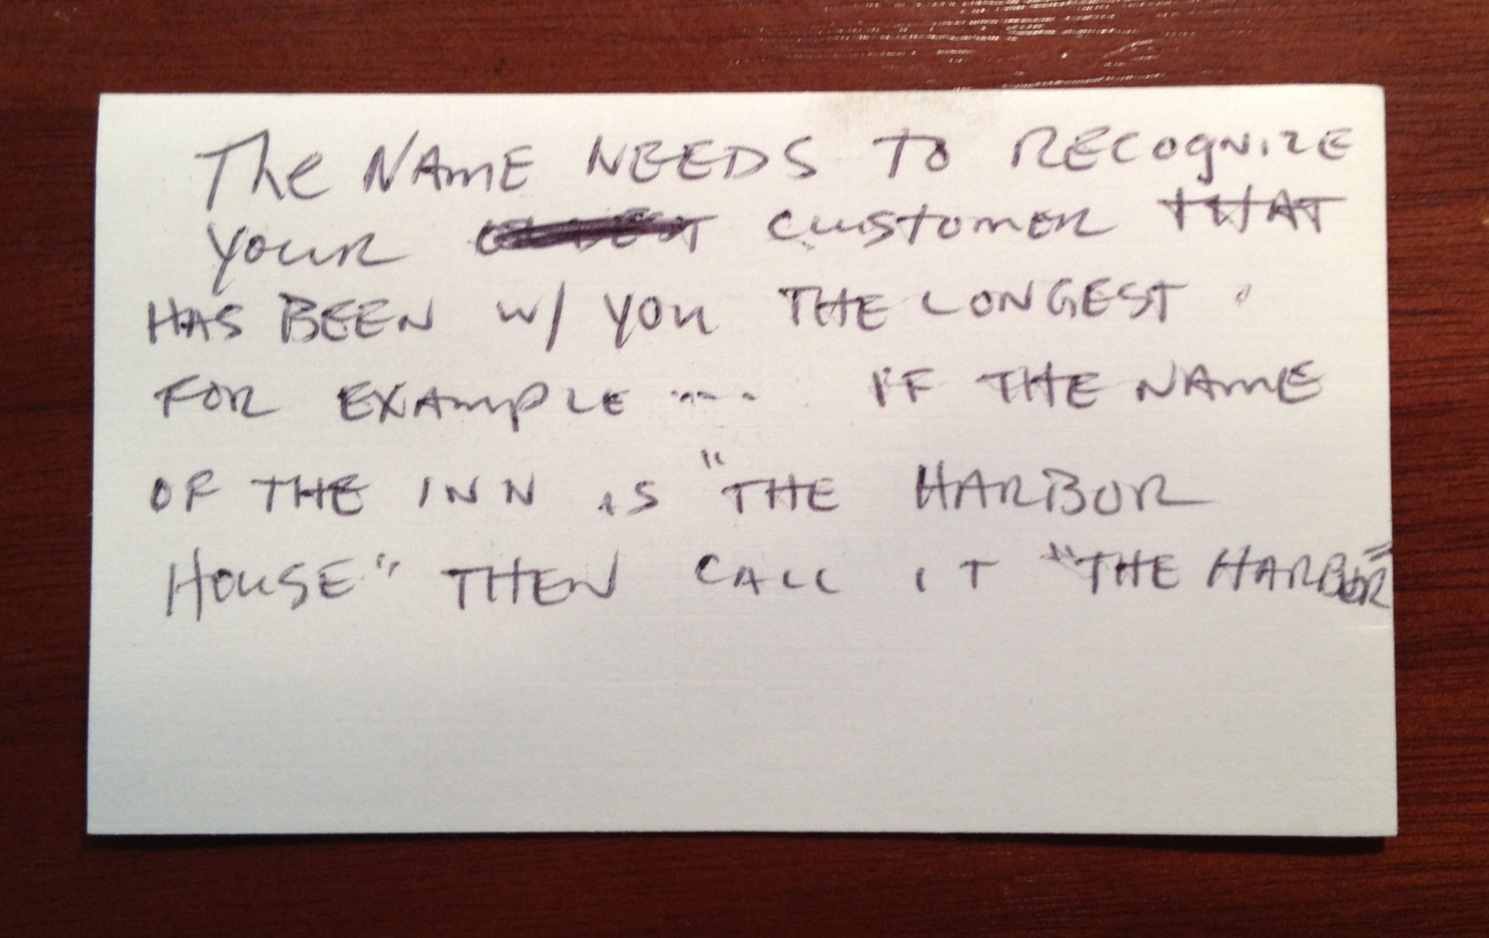 The NAME NEEDS TO RECOGNIZE
YOUR CUSTOMER THAT
HAS BEEN W/ YOU THE LONGEST.
FOR EXAMPLE.... IF THE NAME
OF THE INN IS "THE HARBOR
HOUSE" THEN CALL IT "THE HARBOR"